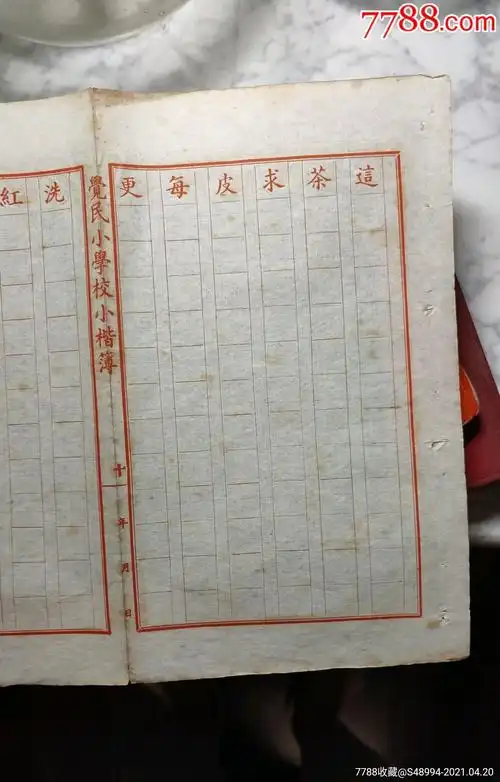 7788.com
這茶求皮每更
覺民小學校小楷簿
十
年 月 日
洗紅
7788收藏@S48994-2021.04.20